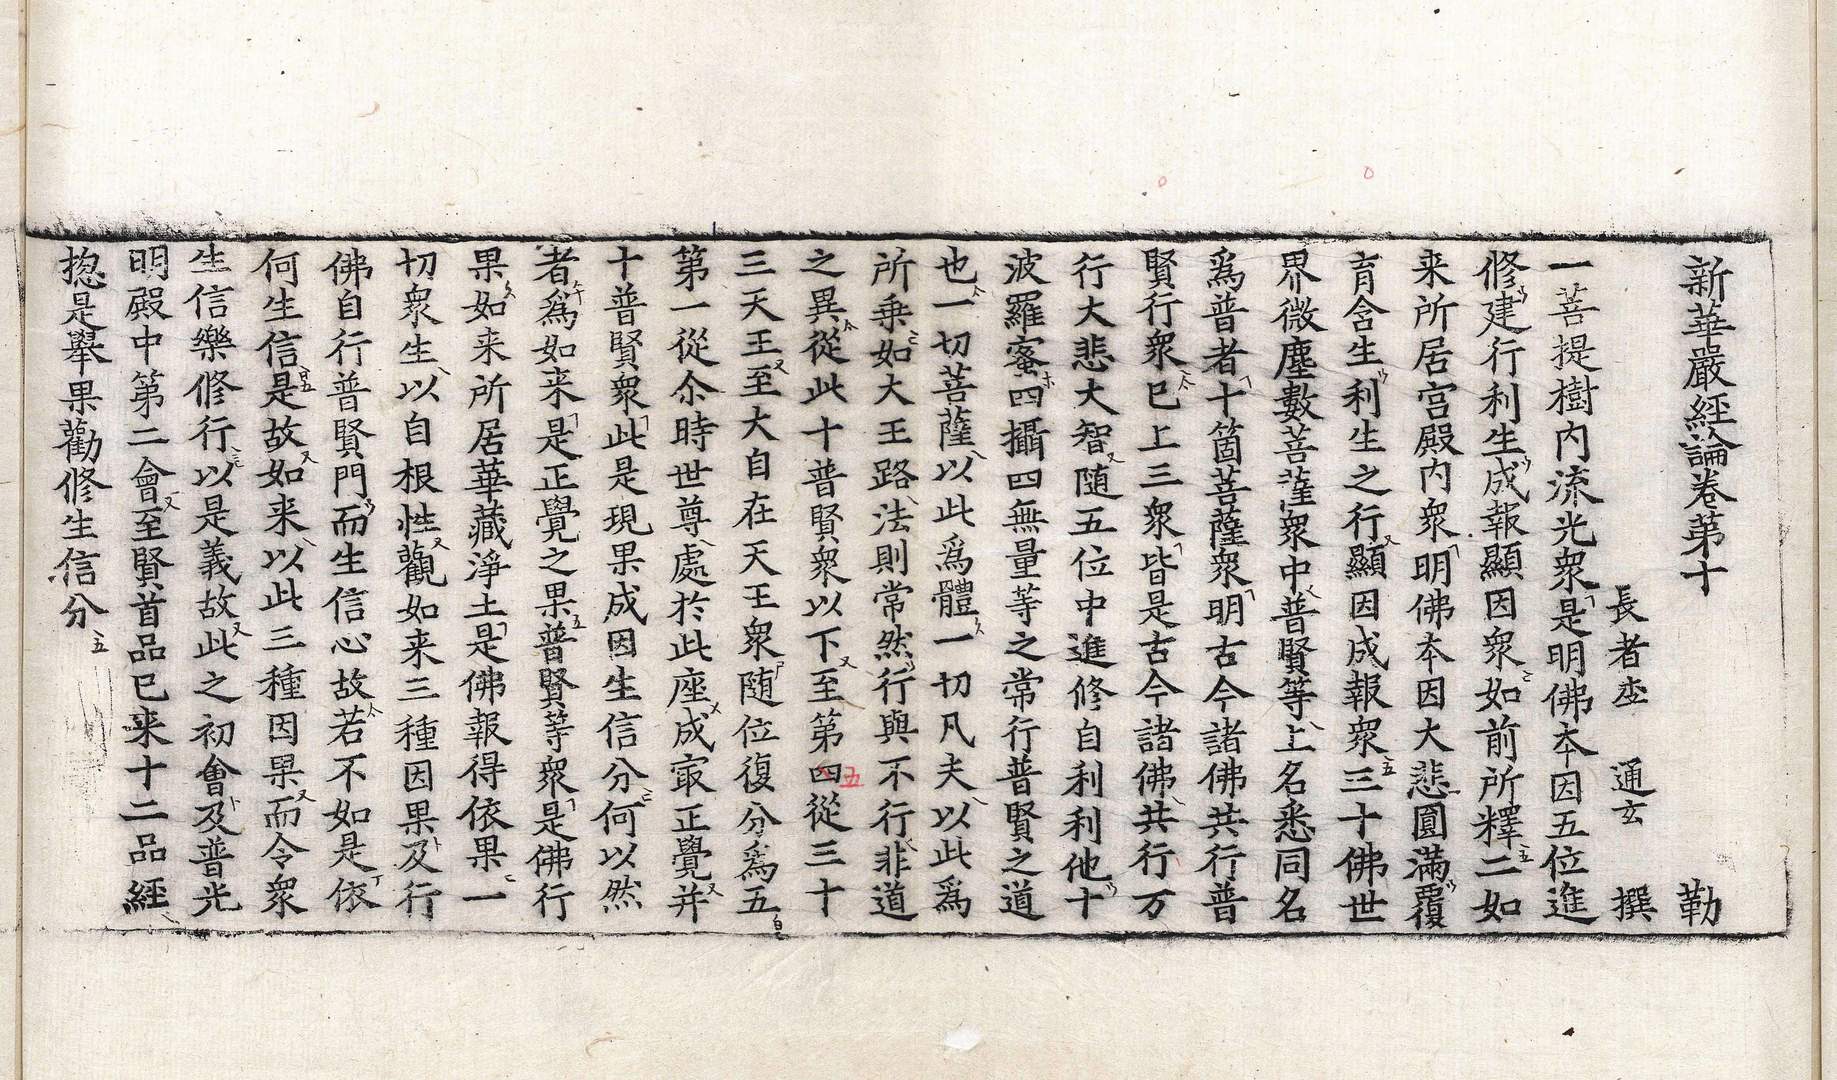 新華嚴經論卷第十 勒
長者李 通玄 撰
一菩提樹內流光衆是明佛本因五位進
修建行利生成報顯因衆如前所釋二如
来所居宮殿內衆明佛本因大悲圓滿覆
育含生利生之行顯因成報衆三十佛世
界微塵數菩薩衆中普賢等上名悉同名
爲普者十箇菩薩衆明古今諸佛共行普
賢行衆已上三衆皆是古今諸佛共行万
行大悲大智随五位中進修自利利他十
波羅蜜四攝四無量等之常行普賢之道
也一切菩薩以此爲體一切凡夫以此爲
所乗如大王路法則常然行與不行非道
之異從此十普賢衆以下至第四五從三十
三天王至大自在天王衆随位復分爲五
第一從尒時世尊處於此座成㝡正覺并
十普賢衆此是現果成因生信分何以然
者爲如来是正覺之果普賢等衆是佛行
果如来所居華藏淨土是佛報得依果一
切衆生以自根性觀如来三種因果及行
佛自行普賢門而生信心故若不如是依
何生信是故如来以此三種因果而令衆
生信樂修行以是義故此之初會及普光
明殿中第二會至賢首品已来十二品經
揔是舉果勸修生信分